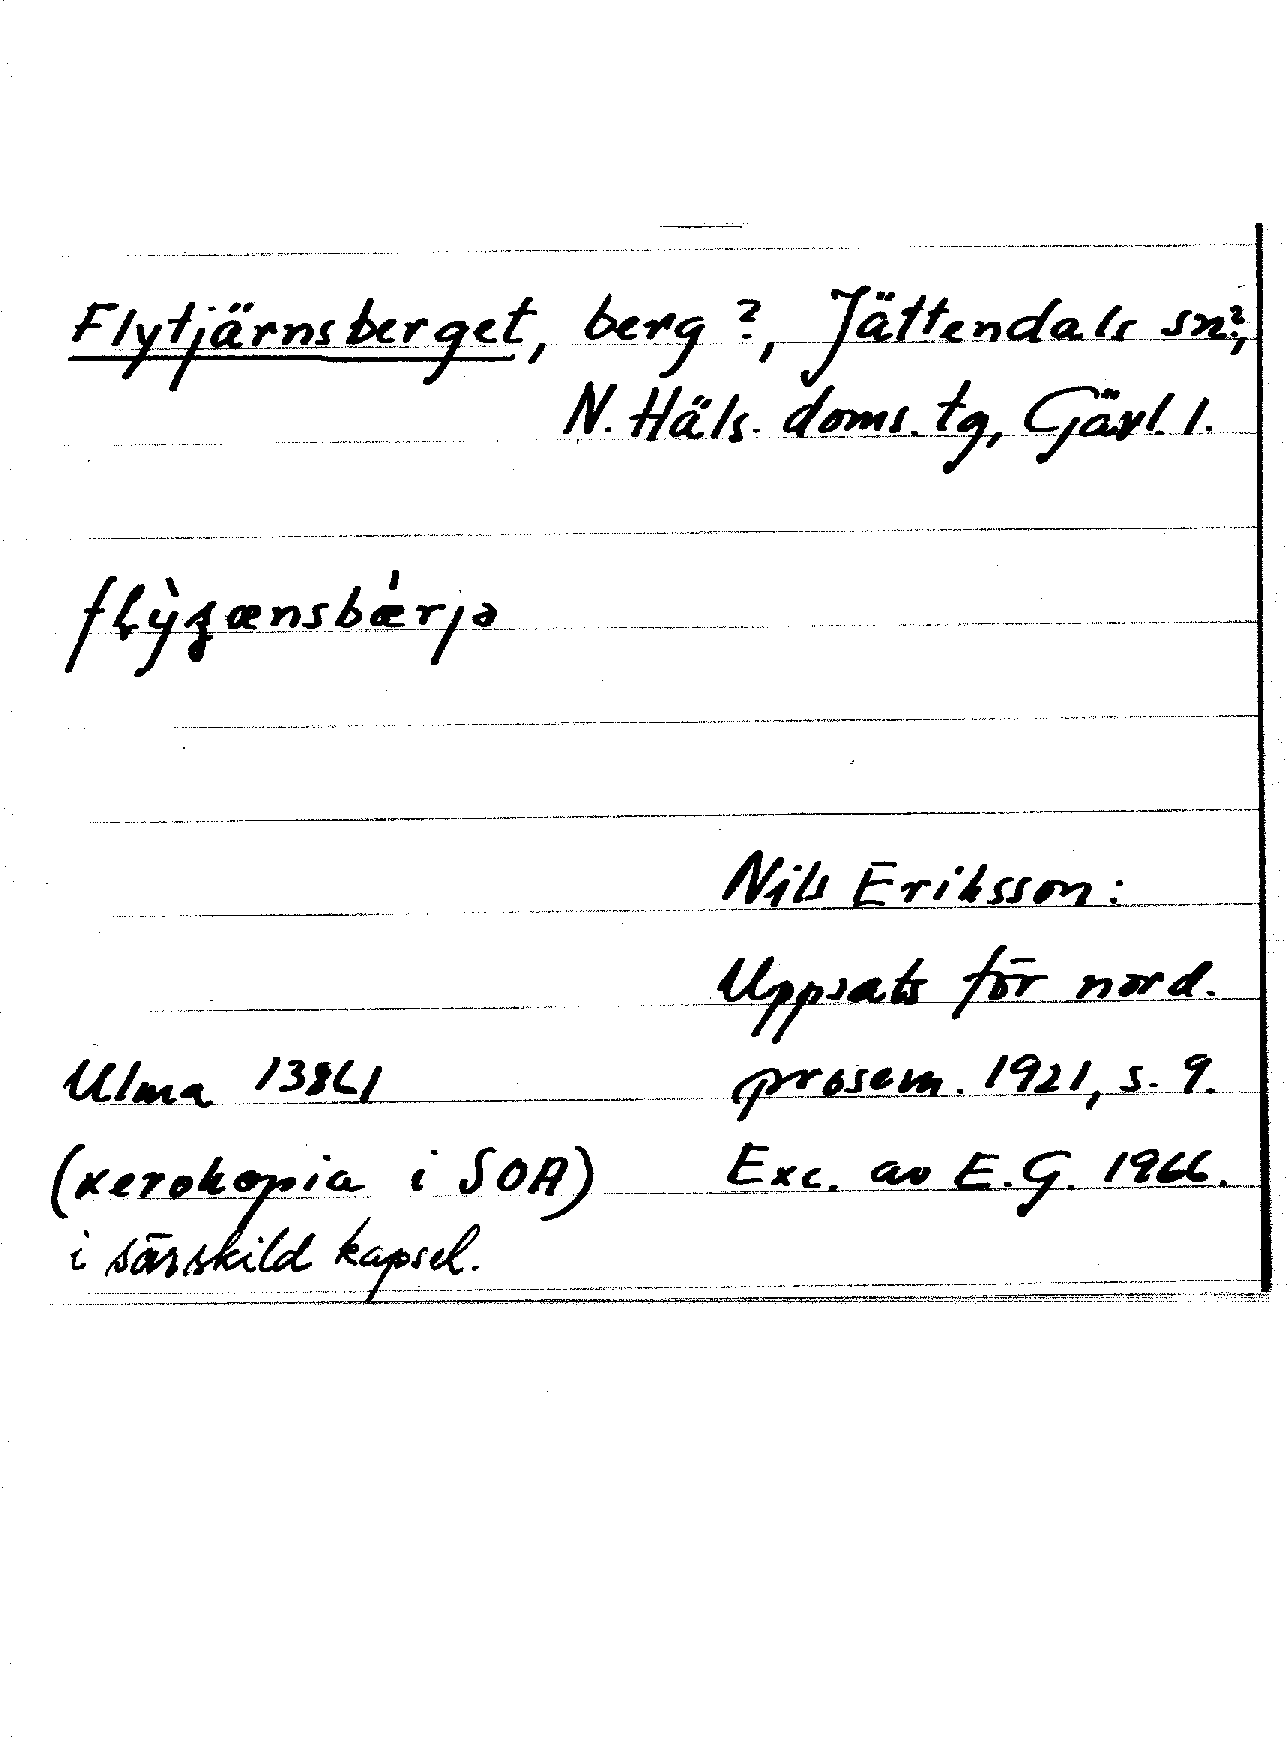 Flytjärnsberget, berg ?, Jättendals sn?,
N. Häls. doms. tg, Gävl. l.
Nils Eriksson:
Uppsats för nord.
Ulma 13861 prosem. 1921, s. 9.
(xerokopia i SOA) Exc. av E.G. 1966.
i särskild kapsel.